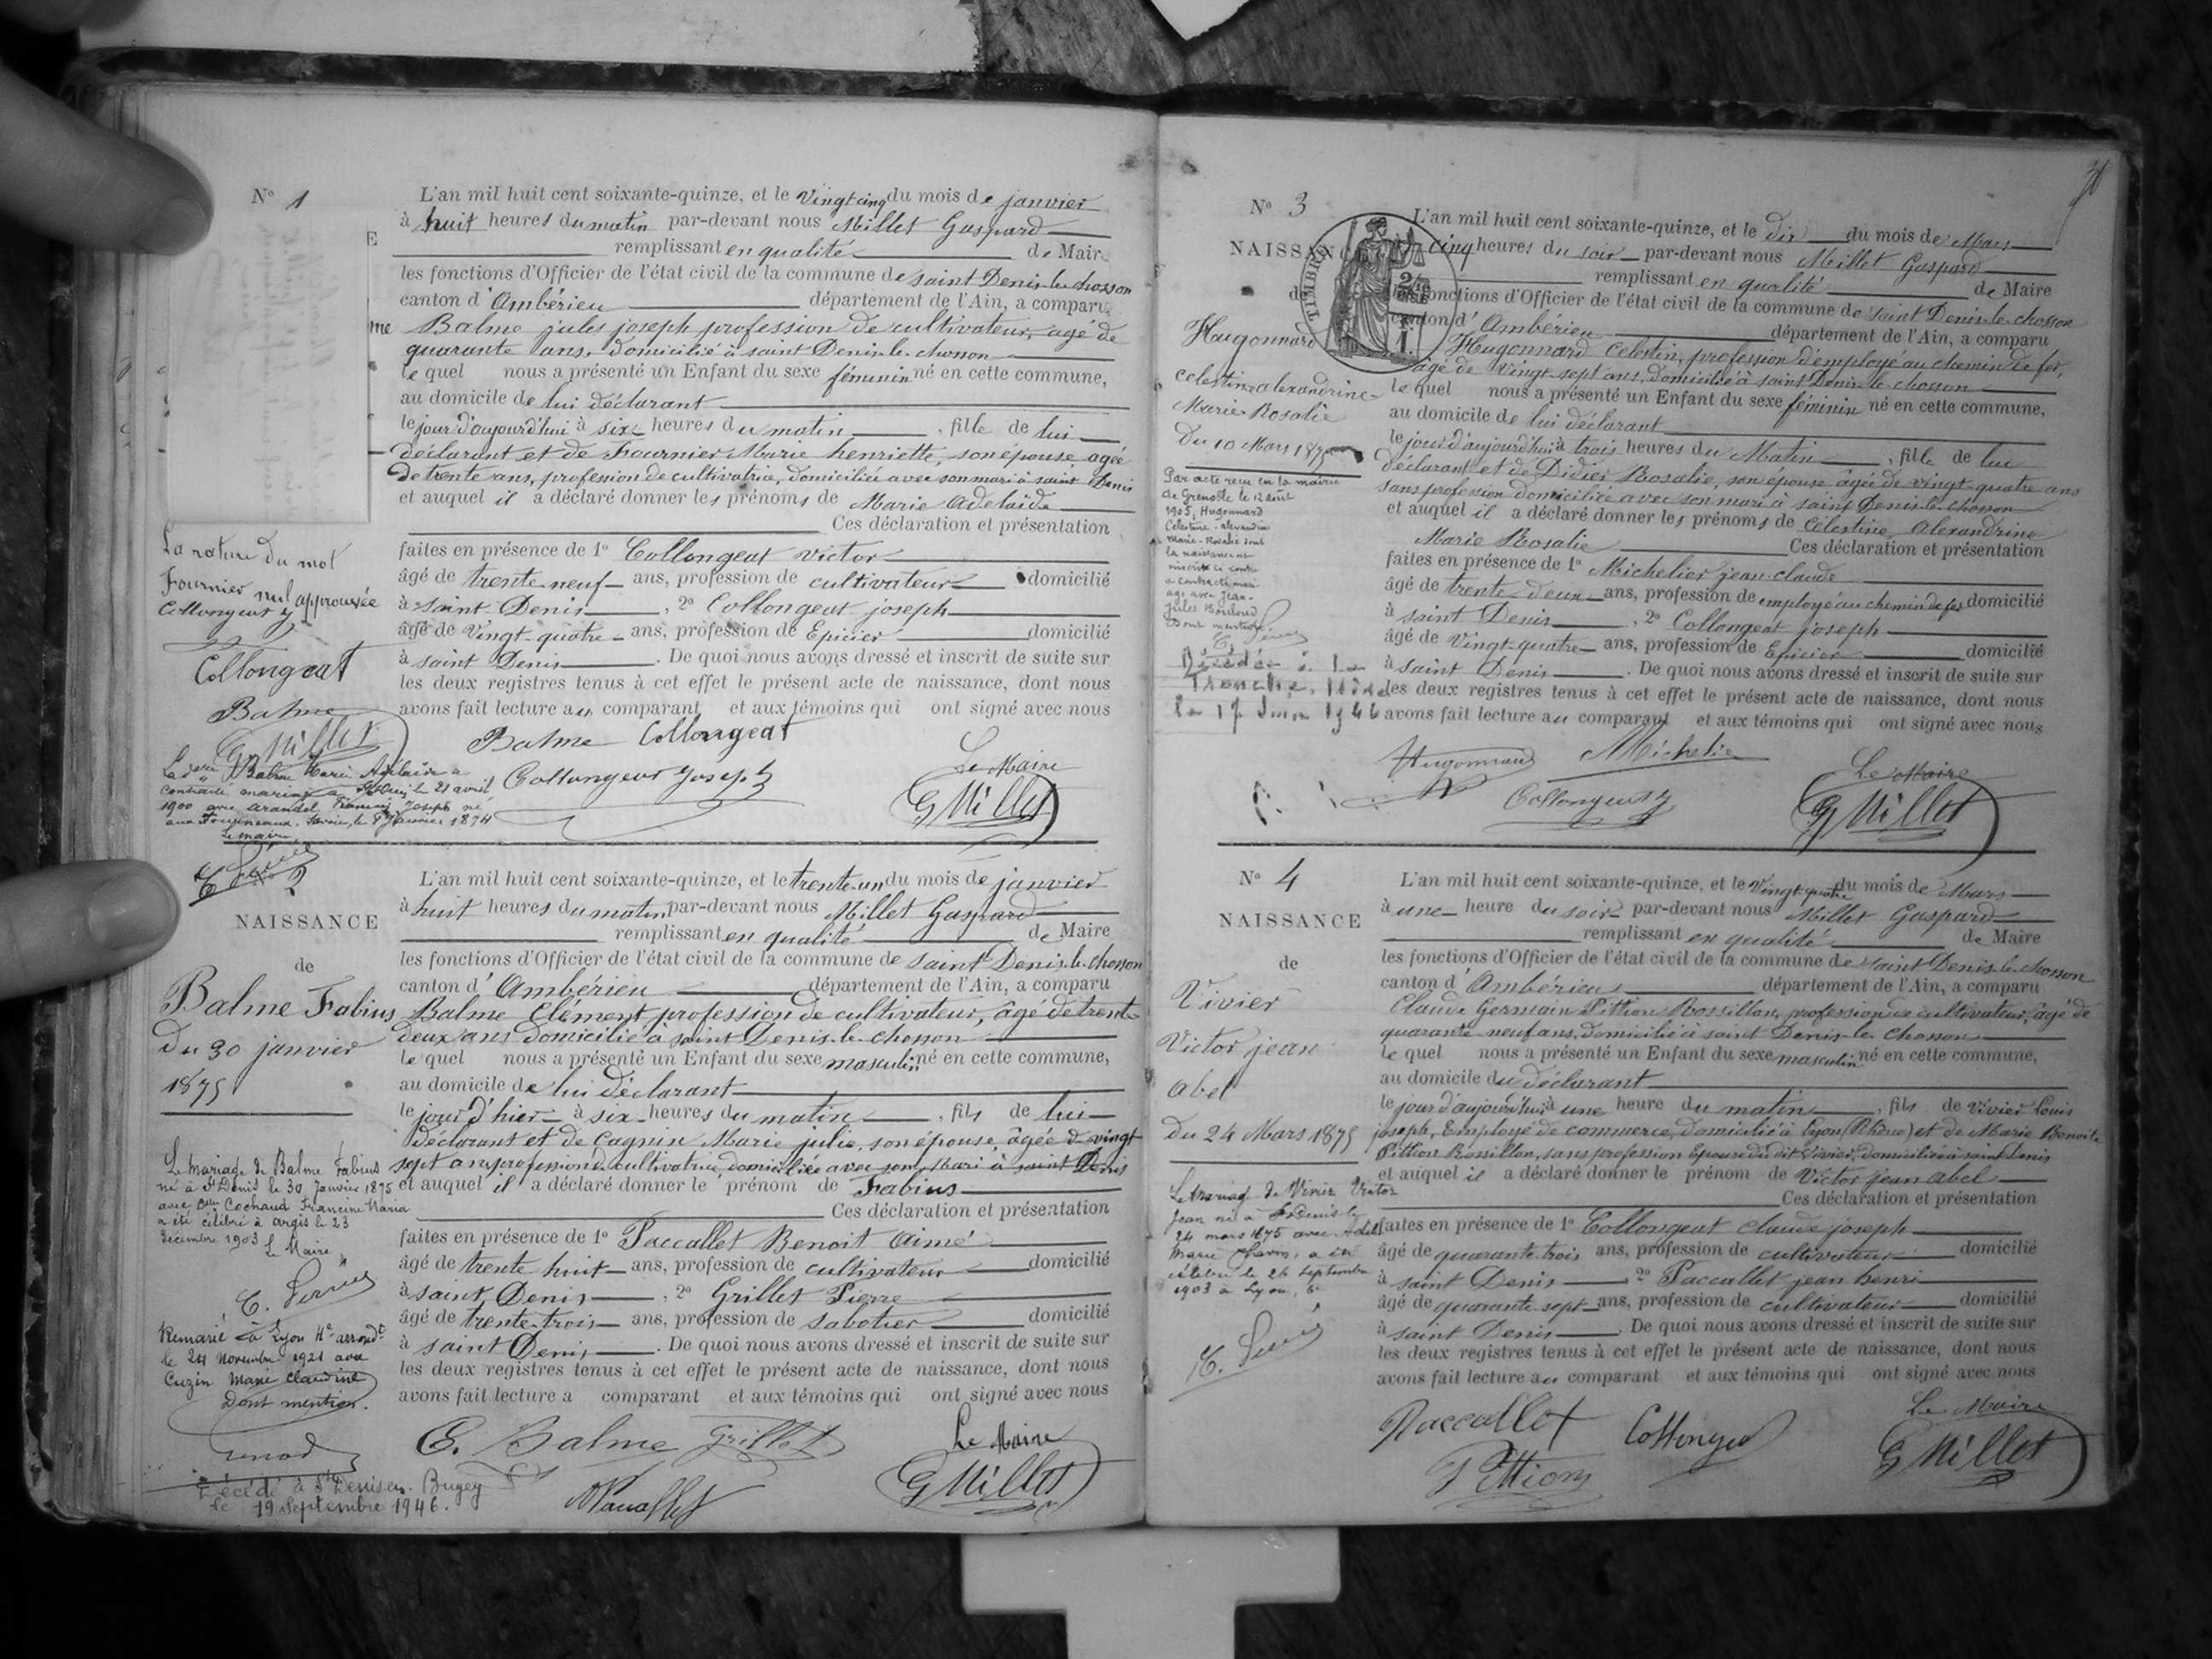 N° 1
L'an mil huit cent soixante-quinze, et le Vingt cinq du mois de janvier
à huit heures du matin par-devant nous Millet Gaspard
remplissant en qualité de Maire
les fonctions d'Officier de l'état civil de la commune de saint Denis-le-chosson
canton d'Ambérieu département de l'Ain, a comparu
Balme jules joseph profession de cultivateur, agé de
quarante ans, domicilié à saint Denis-le-chosson
le quel nous a présenté un Enfant du sexe féminin né en cette commune,
au domicile de lui déclarant
le jour d'aujourd'hui à six heures du matin, fille de lui
déclarant et de Fournier Marie henriette, son épouse agée
de trente ans, profession de cultivatrice, domiciliée avec son mari à saint Denis
et auquel il a déclaré donner les prénoms de Marie Adelaïde
Ces déclaration et présentation
faites en présence de 1° Collongeat victor
âgé de trente-neuf ans, profession de cultivateur domicilié
à saint Denis, 2° Collongeat joseph
âgé de Vingt-quatre ans, profession de Epicier domicilié
à saint Denis. De quoi nous avons dressé et inscrit de suite sur
les deux registres tenus à cet effet le présent acte de naissance, dont nous
avons fait lecture au comparant et aux témoins qui ont signé avec nous
Balme Collongeat
Collongeat Joseph
Le Maire
G Millet
E
me
La rature du mot
Fournier nul approuvée
Collongeat J
Collongeat
Balme
G Millet
Balme Marie Adelaïde a
contracté mariage à St Denis le 21 avril
1900 avec Arandel François Joseph né
aux Fourneaux, Savoie, le 8 Janvier 1874
Le maire
2
NAISSANCE
de
Balme Fabius
Du 30 janvier
1875
Le Mariage de Balme Fabius
né à St Denis le 30 Janvier 1875
avec Cochaud Francine Maria
a été célébré à Argis le 23
décembre 1903 Le Maire
Remarié à Lyon 4e arrondt
le 24 Novembre 1921 avec
Cuzin Marie Claudine
Dont mention.
Décédé à St Denis en Bugey
le 19 Septembre 1946.
L'an mil huit cent soixante-quinze, et le trente-un du mois de janvier
à huit heures du matin par-devant nous Millet Gaspard
remplissant en qualité de Maire
les fonctions d'Officier de l'état civil de la commune de saint Denis-le-chosson
canton d'Ambérieu département de l'Ain, a comparu
Balme Clément, profession de cultivateur, âgé de trente
deux ans domicilié à saint Denis-le-chosson
le quel nous a présenté un Enfant du sexe masculin né en cette commune,
au domicile de lui déclarant
le jour d'hier à six heures du matin, fils de lui
déclarant et de Cagnin Marie julie, son épouse âgée de vingt
sept ans profession de cultivatrice domiciliée avec son Mari à saint Denis
et auquel il a déclaré donner le prénom de Fabius
Ces déclaration et présentation
faites en présence de 1° Paccallet Benoit Aimé
âgé de trente huit ans, profession de cultivateur domicilié
à saint Denis, 2° Grillet Pierre
âgé de trente-trois ans, profession de sabotier domicilié
à saint Denis. De quoi nous avons dressé et inscrit de suite sur
les deux registres tenus à cet effet le présent acte de naissance, dont nous
avons fait lecture a comparant et aux témoins qui ont signé avec nous
C. Balme Grillet
Le Maire
G Millet
N° 3
NAISSANCE
de
Hugonnard
celestine alexandrine
Marie Rosalie
Du 10 Mars 1875
Par acte reçu en la mairie
de Grenoble le 12 août
1905, Hugonnard
Célestine-alexandrine
Marie-Rosalie dont
la naissance est
inscrite ci contre
a contracté mari-
age avec Jean-
Dont mention
Décédée à La
Tronche, Isère
le 17 Juin 1946
TIMBRE
L'an mil huit cent soixante-quinze, et le dix du mois de Mars
cinq heures du soir par-devant nous Millet Gaspard
remplissant en qualité de Maire
les fonctions d'Officier de l'état civil de la commune de saint Denis-le-chosson
canton d'Ambérieu département de l'Ain, a comparu
Hugonnard Celestin, profession d'employé au chemin de fer,
âgé de vingt-sept ans, domicilié à saint Denis-le-chosson
le quel nous a présenté un Enfant du sexe féminin né en cette commune,
au domicile de lui déclarant
le jour d'aujourd'hui à trois heures du Matin, fille de lui
déclarant et de Didier Rosalie, son épouse âgée de vingt-quatre ans
sans profession domiciliée avec son mari à saint Denis-le-chosson
et auquel il a déclaré donner les prénoms de Célestine, Alexandrine
Marie Rosalie Ces déclaration et présentation
faites en présence de 1° Michelier jean-claude
âgé de trente-deux ans, profession de employé au chemin de fer domicilié
à saint Denis, 2° Collongeat joseph
âgé de Vingt-quatre ans, profession de Epicier domicilié
à saint Denis. De quoi nous avons dressé et inscrit de suite sur
les deux registres tenus à cet effet le présent acte de naissance, dont nous
avons fait lecture au comparant et aux témoins qui ont signé avec nous
Hugonnard Michelier
Collongeat J
Le Maire
G Millet
N° 4
NAISSANCE
de
Vivier
Victor jean
abel
Du 24 Mars 1875
Le mariage de Vivier Victor
Jean né à St Denis le
24 mars 1875 avec Adèle
Marie, a été
célébré le 26 Septembre
1903 à Lyon, 6e
L'an mil huit cent soixante-quinze, et le Vingt-quatre du mois de Mars
à une heure du soir par-devant nous Millet Gaspard
remplissant en qualité de Maire
les fonctions d'Officier de l'état civil de la commune de saint Denis-le-chosson
canton d'Ambérieu département de l'Ain, a comparu
Claude Germain Pittion Rossillon, profession de cultivateur, âgé de
quarante-neuf ans, domicilié à saint Denis-le-chosson
le quel nous a présenté un Enfant du sexe masculin né en cette commune,
au domicile du déclarant
le jour d'aujourd'hui à une heure du matin, fils de Vivier Louis
joseph, Employé de commerce, domicilié à Lyon (Rhône) et de Marie Benoite
Pittion Rossillon, sans profession Epouse du dit Vivier, domiciliée à saint Denis
et auquel il a déclaré donner le prénom de Victor jean abel
Ces déclaration et présentation
faites en présence de 1° Collongeat claude joseph
âgé de quarante-trois ans, profession de cultivateur domicilié
à saint Denis 2° Paccallet jean henri
âgé de quarante-sept ans, profession de cultivateur domicilié
à saint Denis. De quoi nous avons dressé et inscrit de suite sur
les deux registres tenus à cet effet le présent acte de naissance, dont nous
avons fait lecture au comparant et aux témoins qui ont signé avec nous
Paccallet Collongeat
Pittion
Le Maire
G Millet